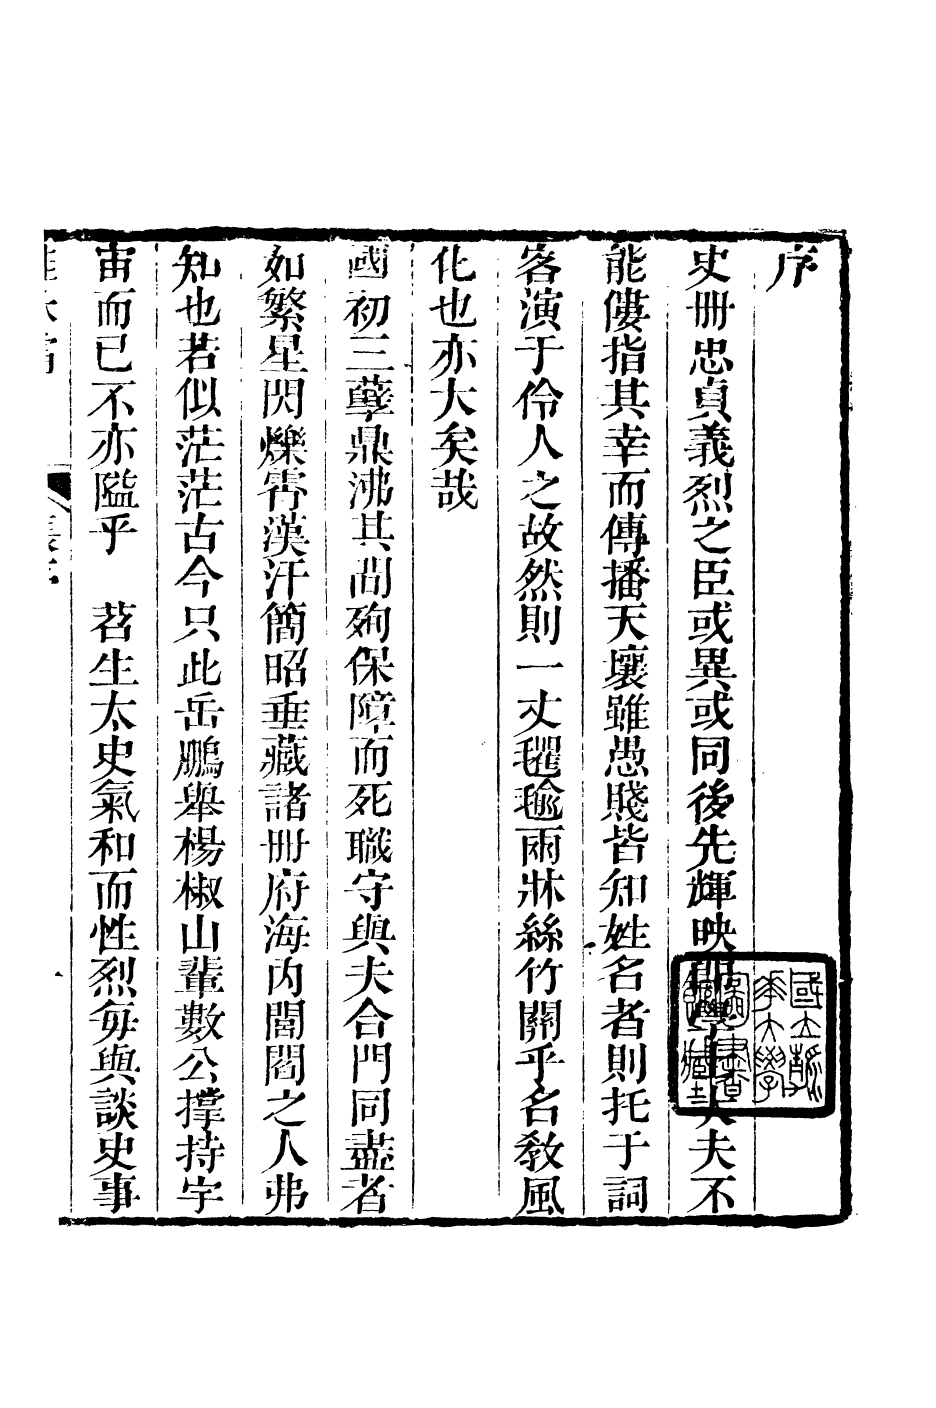 序
史冊忠貞義烈之臣或異或同後先輝映學士大夫不
能僂指其幸而傳播天壤雖愚賤皆知姓名者則托于詞
客演于伶人之故然則一丈氍毹兩牀絲竹關乎名敎風
化也亦大矣哉
國初三孽鼎沸其間殉保障而死職守與夫合門同盡者
如繁星閃爍霄漢汗簡昭垂藏諸冊府海內閭閻之人弗
知也若似茫茫古今只此岳鵬舉楊椒山輩數公撑持宇
宙而已不亦隘乎　苕生太史氣和而性烈每與談史事
國立
華大學
圖書
館藏